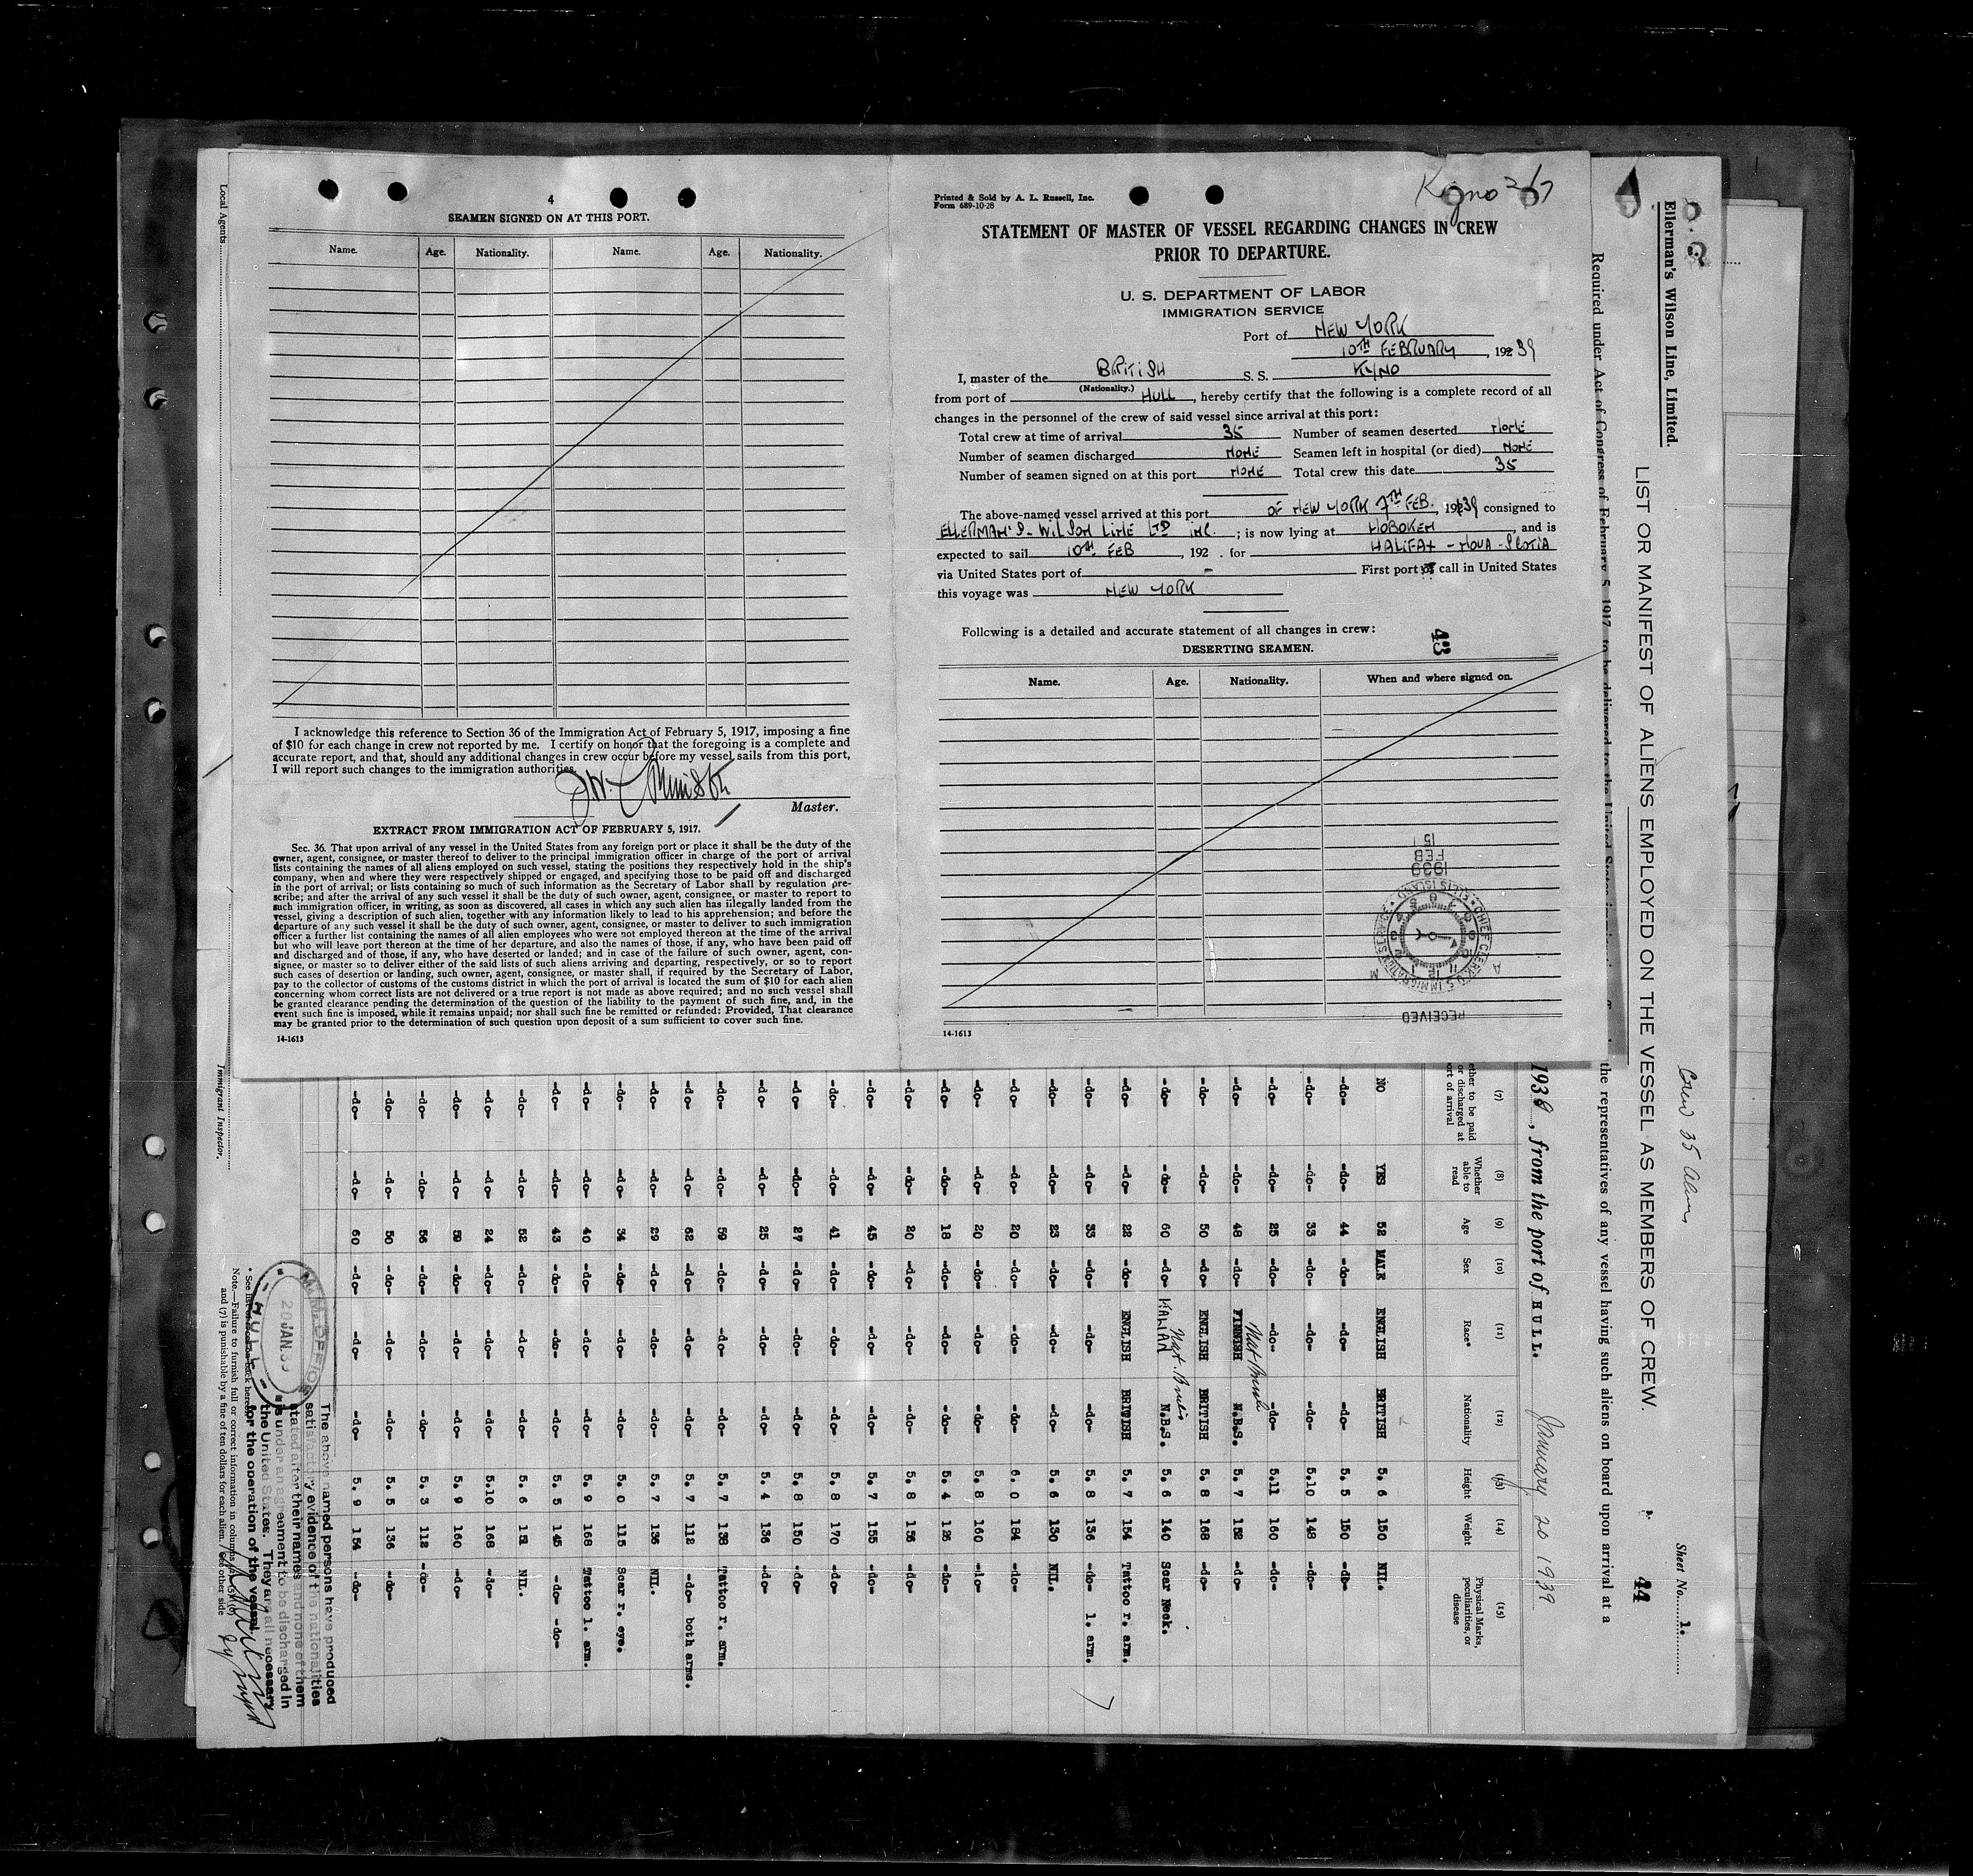 4
SEAMEN SIGNED ON AT THIS PORT.
Name. Age. Nationality. Name. Age. Nationality.
I acknowledge this reference to Section 36 of the Immigration Act of February 5, 1917, imposing a fine
of $10 for each change in crew not reported by me. I certify on honor that the foregoing is a complete and
accurate report, and that, should any additional changes in crew occur before my vessel sails from this port,
I will report such changes to the immigration authorities.
Master.
EXTRACT FROM IMMIGRATION ACT OF FEBRUARY 5, 1917.
Sec. 36. That upon arrival of any vessel in the United States from any foreign port or place it shall be the duty of the
owner, agent, consignee, or master thereof to deliver to the principal immigration officer in charge of the port of arrival
lists containing the names of all aliens employed on such vessel, stating the positions they respectively hold in the ship's
company, when and where they were respectively shipped or engaged, and specifying those to be paid off and discharged
in the port of arrival; or lists containing so much of such information as the Secretary of Labor shall by regulation pre-
scribe; and after the arrival of any such vessel it shall be the duty of such owner, agent, consignee, or master to report to
such immigration officer, in writing, as soon as discovered, all cases in which any such alien has illegally landed from the
vessel, giving a description of such alien, together with any information likely to lead to his apprehension; and before the
departure of any such vessel it shall be the duty of such owner, agent, consignee, or master to deliver to such immigration
officer a further list containing the names of all alien employees who were not employed thereon at the time of the arrival
but who will leave port thereon at the time of her departure, and also the names of those, if any, who have been paid off
and discharged and of those, if any, who have deserted or landed; and in case of the failure of such owner, agent, con-
signee, or master so to deliver either of the said lists of such aliens arriving and departing, respectively, or so to report
such cases of desertion or landing, such owner, agent, consignee, or master shall, if required by the Secretary of Labor,
pay to the collector of customs of the customs district in which the port of arrival is located the sum of $10 for each alien
concerning whom correct lists are not delivered or a true report is not made as above required; and no such vessel shall
be granted clearance pending the determination of the question of the liability to the payment of such fine, and, in the
event such fine is imposed, while it remains unpaid; nor shall such fine be remitted or refunded: Provided, That clearance
may be granted prior to the determination of such question upon deposit of a sum sufficient to cover such fine.
14-1613
Printed & Sold by A. L. Russell, Inc.
Form 689-10-28
Kyno 2/7
STATEMENT OF MASTER OF VESSEL REGARDING CHANGES IN CREW
PRIOR TO DEPARTURE.
U. S. DEPARTMENT OF LABOR
IMMIGRATION SERVICE
Port of NEW YORK
10TH FEBRUARY, 19239
I, master of the BRITISH S. S. KYNO
(Nationality.)
from port of HULL, hereby certify that the following is a complete record of all
changes in the personnel of the crew of said vessel since arrival at this port:
Total crew at time of arrival 35 Number of seamen deserted NONE
Number of seamen discharged NONE Seamen left in hospital (or died) NONE
Number of seamen signed on at this port NONE Total crew this date 35
The above-named vessel arrived at this port OF NEW YORK 7TH FEB., 19239 consigned to
ELLERMAN'S-WILSON LINE LTD INC.; is now lying at HOBOKEN, and is
expected to sail 10TH FEB, 192 . for HALIFAX - NOVA - SCOTIA
via United States port of - First port of call in United States
this voyage was NEW YORK
Following is a detailed and accurate statement of all changes in crew:
43
DESERTING SEAMEN.
Name. Age. Nationality. When and where signed on.
RECEIVED
CHIEF CLERK U.S. IMMIGRATION SERVICE ELLIS ISLAND
1939
FEB
15
14-1613
Ellerman's Wilson Line, Limited.
Crew 35 Aliens
Sheet No. 1.
LIST OR MANIFEST OF ALIENS EMPLOYED ON THE VESSEL AS MEMBERS OF CREW.
44
Required under Act of Congress of February 5, 1917, to be delivered to the United States
the representatives of any vessel having such aliens on board upon arrival at a
1939, from the port of HULL.
January 20 1939
(7) (8) (9) (10) (11) (12) (13) (14) (15)
ether to be paid or discharged at ort of arrival
Whether able to read
Age Sex Race* Nationality Height Weight
Physical Marks, peculiarities, or disease
NO YES 52 MALE ENGLISH BRITISH 5. 6 150 NIL.
-do- -do- 44 -do- -do- -do- 5. 5 150 -do-
-do- -do- 33 -do- -do- -do- 5.10 148 -do-
-do- -do- 25 -do- -do- -do- 5.11 160 -do-
-do- -do- 48 -do- FINNISH N.B.S. 5. 7 152 -do-
-do- -do- 50 -do- ENGLISH BRITISH 5. 8 168 -do-
-do- -do- 60 -do- N.B.S. 5. 6 140 Scar Neck.
-do- -do- 22 -do- ENGLISH BRITISH 5. 7 154 Tattoo r. arm.
-do- -do- 33 -do- -do- -do- 5. 8 136 -do- l. arm.
-do- -do- 23 -do- -do- -do- 5. 6 130 NIL.
-do- -do- 20 -do- -do- -do- 6. 0 184 -do-
-do- -do- 20 -do- -do- -do- 5. 8 160 -do-
-do- -do- 18 -do- -do- -do- 5. 4 126 -do-
-do- -do- 20 -do- -do- -do- 5. 8 156 -do-
-do- -do- 45 -do- -do- -do- 5. 7 155 -do-
-do- -do- 41 -do- -do- -do- 5. 8 170 -do-
-do- -do- 27 -do- -do- -do- 5. 8 150 -do-
-do- -do- 25 -do- -do- -do- 5. 4 136 -do-
-do- -do- 59 -do- -do- -do- 5. 7 138 Tattoo r. arm.
-do- -do- 62 -do- -do- -do- 5. 7 112 -do- both arms.
-do- -do- 29 -do- -do- -do- 5. 7 136 NIL.
-do- -do- 34 -do- -do- -do- 5. 0 115 Scar r. eye.
-do- -do- 40 -do- -do- -do- 5. 9 168 Tattoo l. arm.
-do- -do- 43 -do- -do- -do- 5. 5 145 -do- -do-
-do- -do- 52 -do- -do- -do- 5. 6 151 NIL.
-do- -do- 24 -do- -do- -do- 5.10 168 -do-
-do- -do- 59 -do- -do- -do- 5. 9 160 -do-
-do- -do- 56 -do- -do- -do- 5. 3 112 -do-
-do- -do- 50 -do- -do- -do- 5. 5 136 -do-
-do- -do- 60 -do- -do- -do- 5. 9 154 -do-
The above named persons have produced
satisfactory evidence of the nationalities
stated after their names and none of them
is under an agreement to be discharged in
the United States. They are all necessary
for the operation of the vessel.
M.M. OFFICE
20 JAN. 39
HULL
Note.—Failure to furnish full or correct information in columns
and (7) is punishable by a fine of ten dollars for each alien. See other side
Local Agents
Immigrant Inspector.